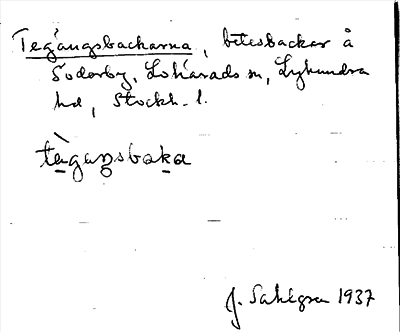 Tegångsbackarna, betesbackar å
Söderby, Lohärads sn, Lyhundra
hd, Stockh. l.
tègaŋsbaka
J. Sahlgren 1937